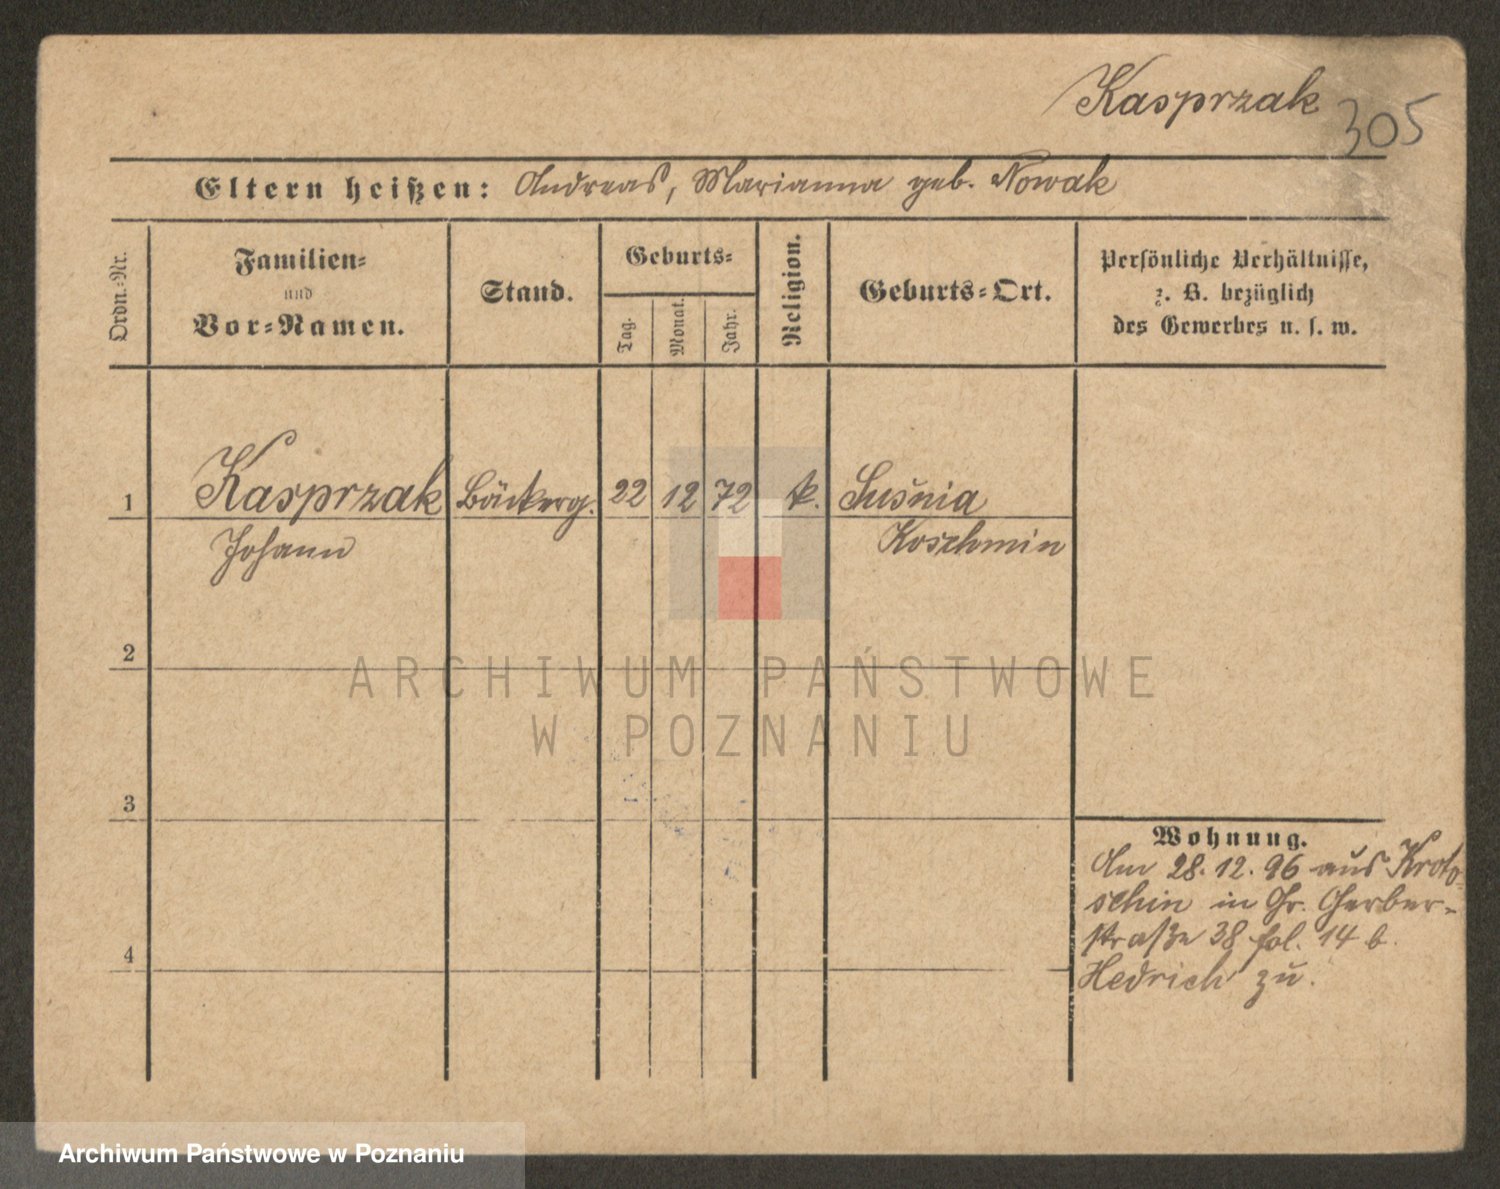 Kasprzak
305
Eltern heißen: Andreas, Marianna geb. Nowak
Ordn.-Nr.
Familien-
und
Vor-Namen.
Stand.
Geburts-
Tag.
Monat.
Jahr.
Religion.
Geburts-Ort.
Persönliche Verhältnisse,
z. B. bezüglich
des Gewerbes u. s. w.
1 Kasprzak Bäckerg. 22 12 72 k. Suśnia
Johann Koschmin
2
ARCHIWUM PAŃSTWOWE
W POZNANIU
3
Wohnung.
Am 28.12.96 aus Kroto-
schin in Gr. Gerber-
straße 38 fol. 14 b.
Hedrich zu.
4
Archiwum Państwowe w Poznaniu